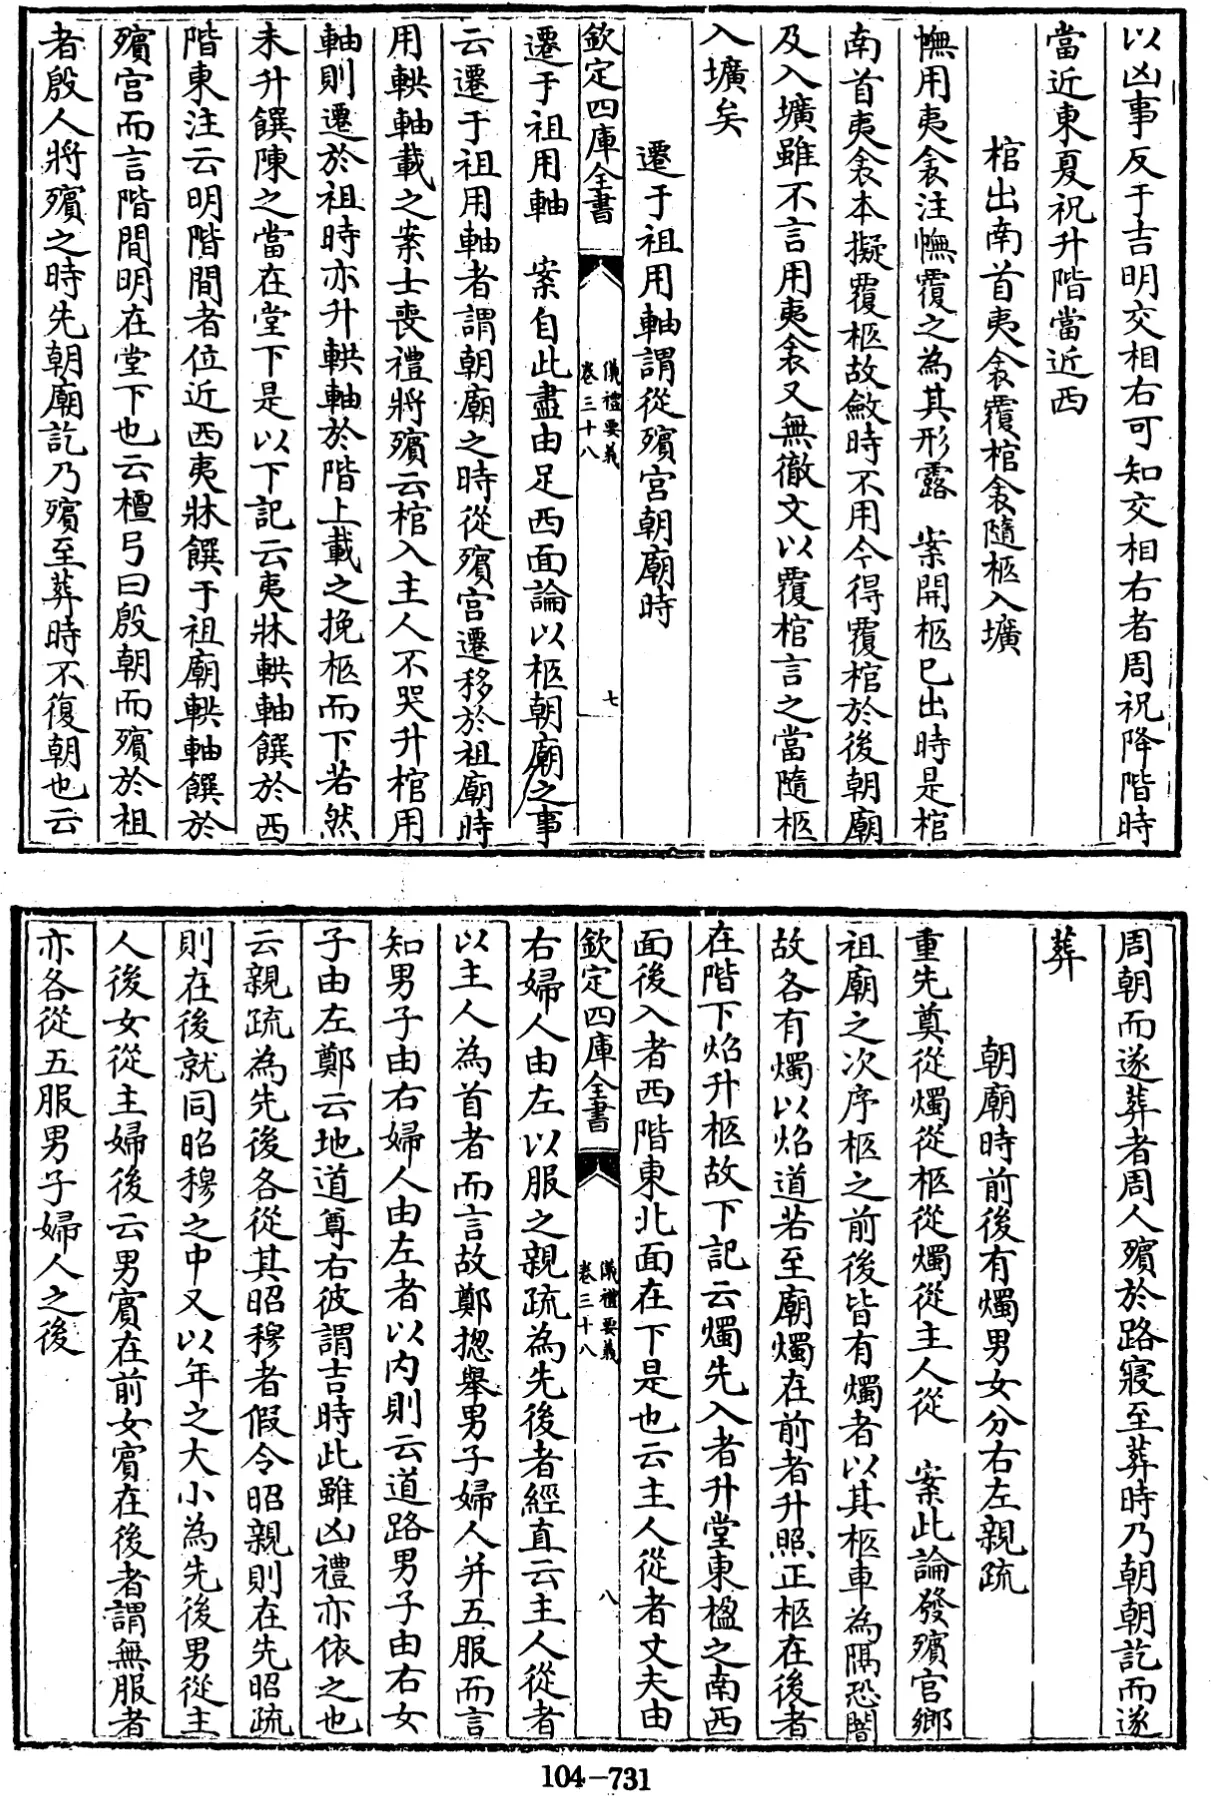 以凶事反于吉明交相右可知交相右者周祝降階時
當近東夏祝升階當近西
棺出南首夷衾覆棺衾隨柩入壙
幠用夷衾注幠覆之為其形露　案開柩已出時是棺
南首夷衾本擬覆柩故斂時不用今得覆棺於後朝廟
及入壙雖不言用夷衾又無徹文以覆棺言之當隨柩
入壙矣
遷于祖用軸謂從殯宮朝廟時
欽定四庫全書
儀禮要義
卷三十八
七
遷于祖用軸　案自此盡由足西面論以柩朝廟之事
云遷于祖用軸者謂朝廟之時從殯宮遷移於祖廟時
用輁軸載之案士喪禮將殯云棺入主人不哭升棺用
軸則遷於祖時亦升輁軸於階上載之挽柩而下若然
未升饌陳之當在堂下是以下記云夷牀輁軸饌於西
階東注云明階間者位近西夷牀饌于祖廟輁軸饌於
殯宮而言階間明在堂下也云檀弓曰殷朝而殯於祖
者殷人將殯之時先朝廟訖乃殯至葬時不復朝也云
周朝而遂葬者周人殯於路寢至葬時乃朝朝訖而遂
葬
朝廟時前後有燭男女分右左親疏
重先奠從燭從柩從燭從主人從　案此論發殯宮鄉
祖廟之次序柩之前後皆有燭者以其柩車為隔恐闇
故各有燭以炤道若至廟燭在前者升照正柩在後者
在階下炤升柩故下記云燭先入者升堂東楹之南西
面後入者西階東北面在下是也云主人從者丈夫由
欽定四庫全書
儀禮要義
卷三十八
八
右婦人由左以服之親疏為先後者經直云主人從者
以主人為首者而言故鄭揔舉男子婦人并五服而言
知男子由右婦人由左者以内則云道路男子由右女
子由左鄭云地道尊右彼謂吉時此雖凶禮亦依之也
云親疏為先後各從其昭穆者假令昭親則在先昭疏
則在後就同昭穆之中又以年之大小為先後男從主
人後女從主婦後云男賓在前女賓在後者謂無服者
亦各從五服男子婦人之後
104-731